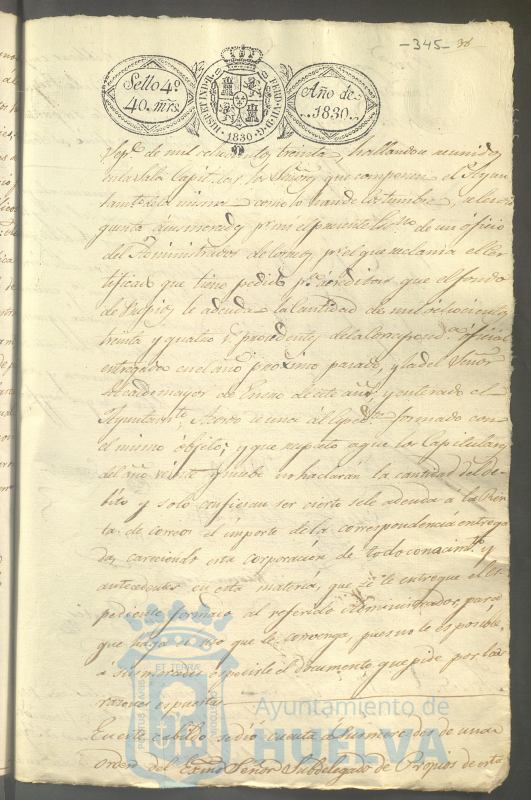 -345- 38
Sello 4º
40. mrs.
HISP. ET IND. R. FERD. VII. D. G. 1830
Año de
1830.
Sepe. de mil ochocientos treinta, hallandose reunidos
en la Sala Capitular los Señores que componen el Ayun
tamto. de la misma como lo han de costumbre,
por mi el presente Essno. de un oficio
del Administrador de Correos, por el que reclama el cer
tificado que tiene pedido para acreditar que el fondo
de Propios le adeuda la Cantidad de mil ochocientos
treinta y quatro rs. procedentes de la Correspondª. oficial
entregada en el año proximo pasado, y la del Señor
Alcalde mayor de Enero de este año, y enterado el
Ayuntamto., Acordo se una al Espedte. formado con
el mismo objeto; y que respecto a que los Capitulares
del año veinte y nuebe no haclarán la cantidad del de
bito y solo confiesan ser cierto se le adeuda a la Ren
ta de correos el importe de la correspondencia entrega
da, careciendo esta corporacion de todo conocimto. y
antecedentes en esta materia, que se le entregue el es
pediente formado al referido Administrador, para
que haga el uso que le convenga, pues no le es posible
á sus mercedes espedirle el documento que pide por las
razones espuestas
En este cabildo se dió cuenta á sus mercedes de una
orden del Exmo Señor Subdelegado de Propios de esta
PORTUS MARIS ET TERRÆ CUSTODIA
Ayuntamiento de
HUELVA